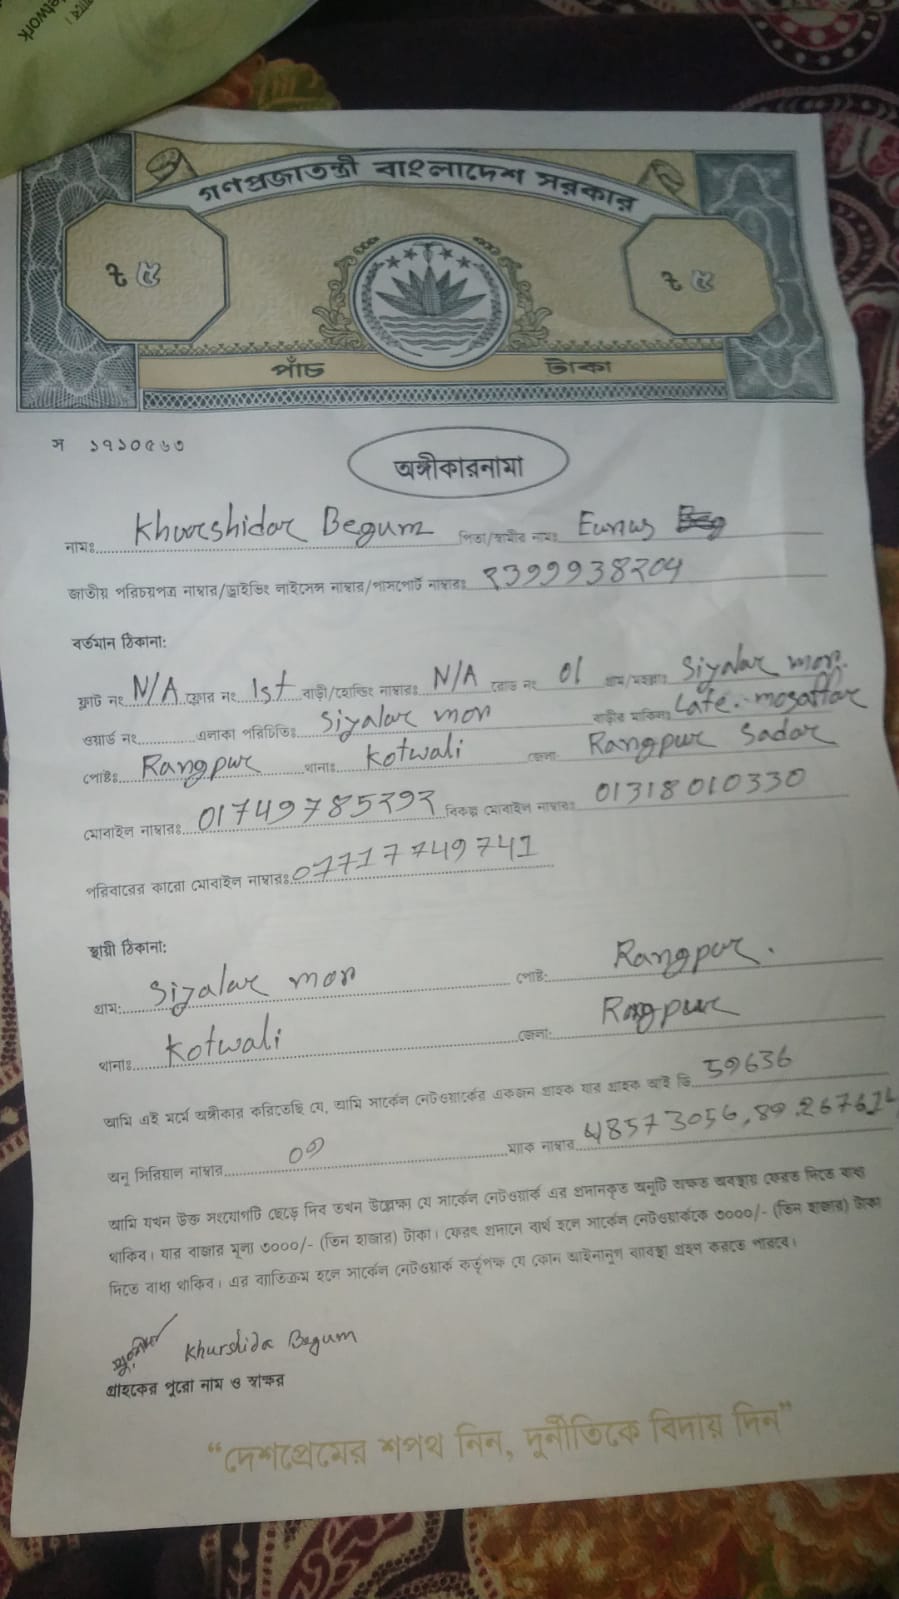 etwork
গণপ্রজাতন্ত্রী বাংলাদেশ সরকার
৳ ৫ ৳ ৫
পাঁচ টাকা
স ১৭১০৫৬৩
অঙ্গীকারনামা
নামঃ Khurshidar Begum পিতা/স্বামীর নামঃ Eunus
জাতীয় পরিচয়পত্র নাম্বার/ড্রাইভিং লাইসেন্স নাম্বার/পাসপোর্ট নাম্বারঃ
বর্তমান ঠিকানা:
ফ্লাট নং N/A ফ্লোর নং 1st বাড়ী/হোল্ডিং নাম্বারঃ N/A রোড নং 01 গ্রাম/মহল্লাঃ Siyalar mon.
ওয়ার্ড নং এলাকা পরিচিতিঃ Siyalar mon বাড়ীর মালিকঃ Late. mosaffar
পোষ্টঃ Rangpur থানাঃ Kotwali জেলা: Rangpur Sadar
মোবাইল নাম্বারঃ 01749785292 বিকল্প মোবাইল নাম্বারঃ 01318010330
পরিবারের কারো মোবাইল নাম্বারঃ 01717749741
স্থায়ী ঠিকানা:
গ্রাম: Siyalar mon পোষ্ট: Rangpur.
থানাঃ Kotwali জেলা: Rangpur
আমি এই মর্মে অঙ্গীকার করিতেছি যে, আমি সার্কেল নেটওয়ার্কের একজন গ্রাহক যার গ্রাহক আই ডি 59636
অনু সিরিয়াল নাম্বার ০৩ ম্যাক নাম্বার
আমি যখন উক্ত সংযোগটি ছেড়ে দিব তখন উল্লেক্ষা যে সার্কেল নেটওয়ার্ক এর প্রদানকৃত অনুটি অক্ষত অবস্থায় ফেরত দিতে বাধ্য
থাকিব। যার বাজার মূল্য ৩০০০/- (তিন হাজার) টাকা। ফেরৎ প্রদানে ব্যর্থ হলে সার্কেল নেটওয়ার্ককে ৩০০০/- (তিন হাজার) টাকা
দিতে বাধ্য থাকিব। এর ব্যাতিক্রম হলে সার্কেল নেটওয়ার্ক কর্তৃপক্ষ যে কোন আইনানুগ ব্যাবস্থা গ্রহণ করতে পারবে।
Khurshida Begum
গ্রাহকের পুরো নাম ও স্বাক্ষর
“দেশপ্রেমের শপথ নিন, দুর্নীতিকে বিদায় দিন”